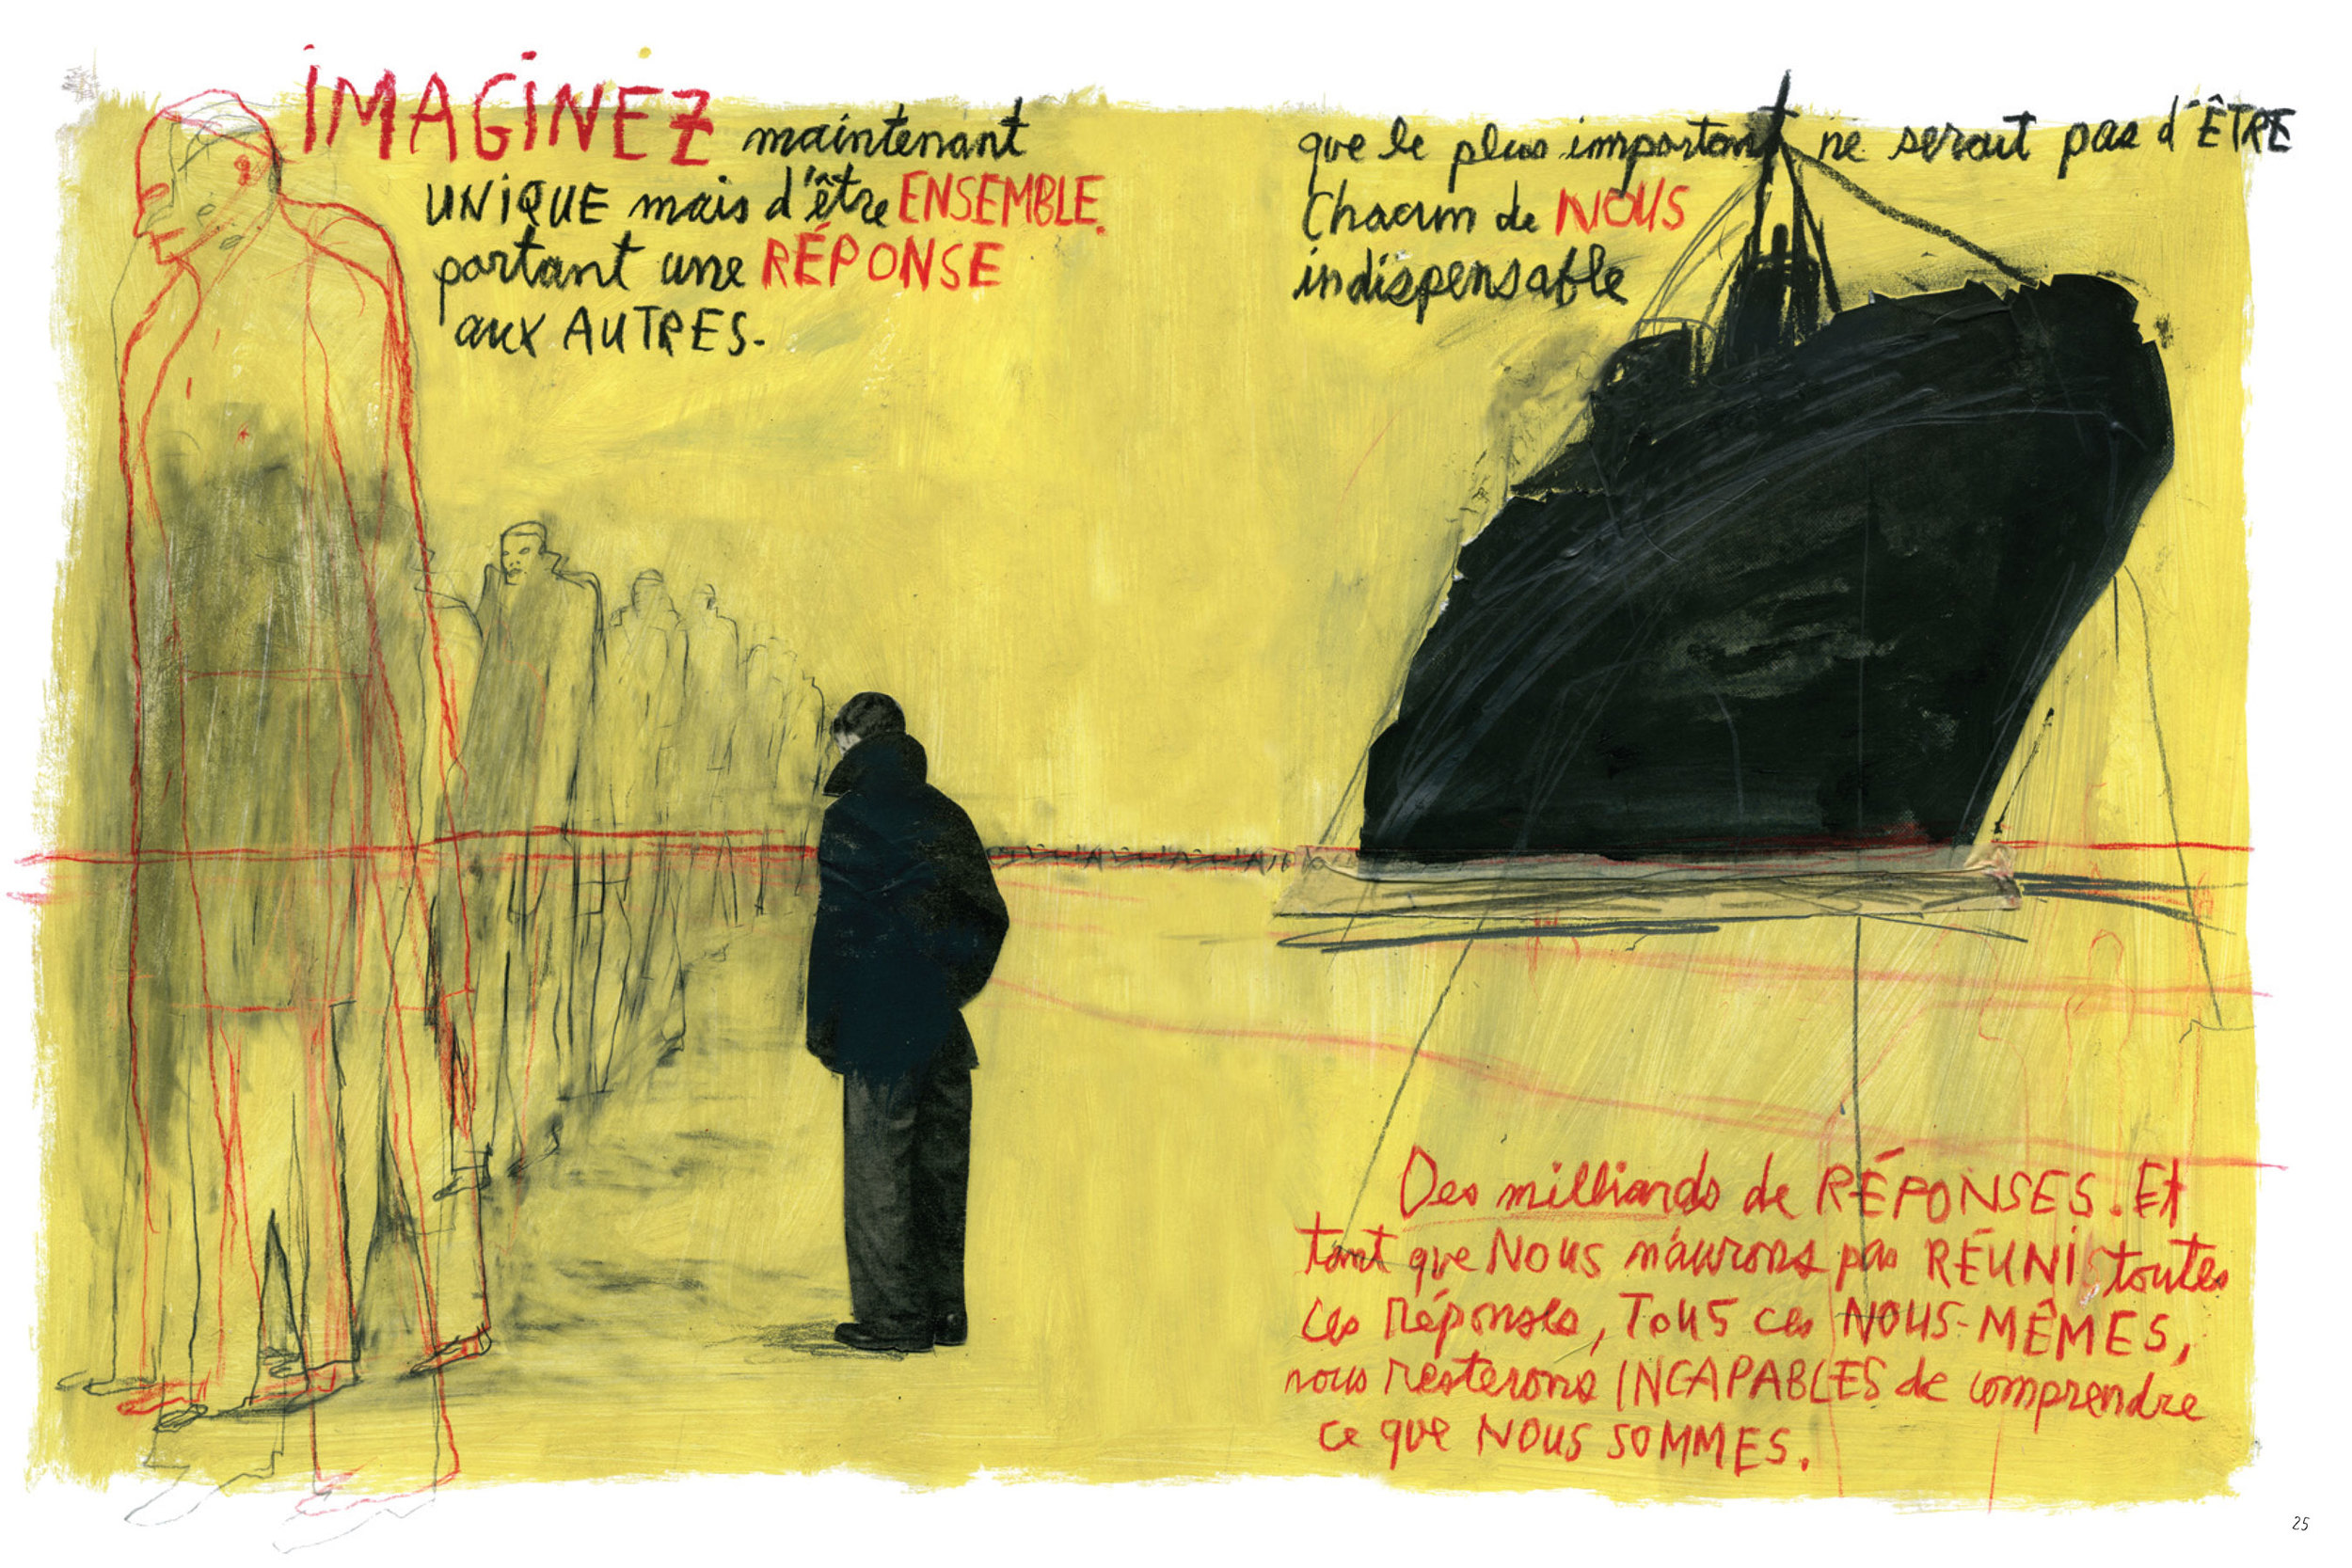 IMAGINEZ maintenant que le plus important ne serait pas d'ÊTRE
UNIQUE mais d'être ENSEMBLE. Chacun de NOUS
portant une RÉPONSE indispensable
aux AUTRES.
Des milliards de RÉPONSES. Et
tant que NOUS n'aurons pas RÉUNI toutes
ces Réponses, TOUS ces NOUS-MÊMES,
nous resterons INCAPABLES de comprendre
ce que NOUS SOMMES.
25